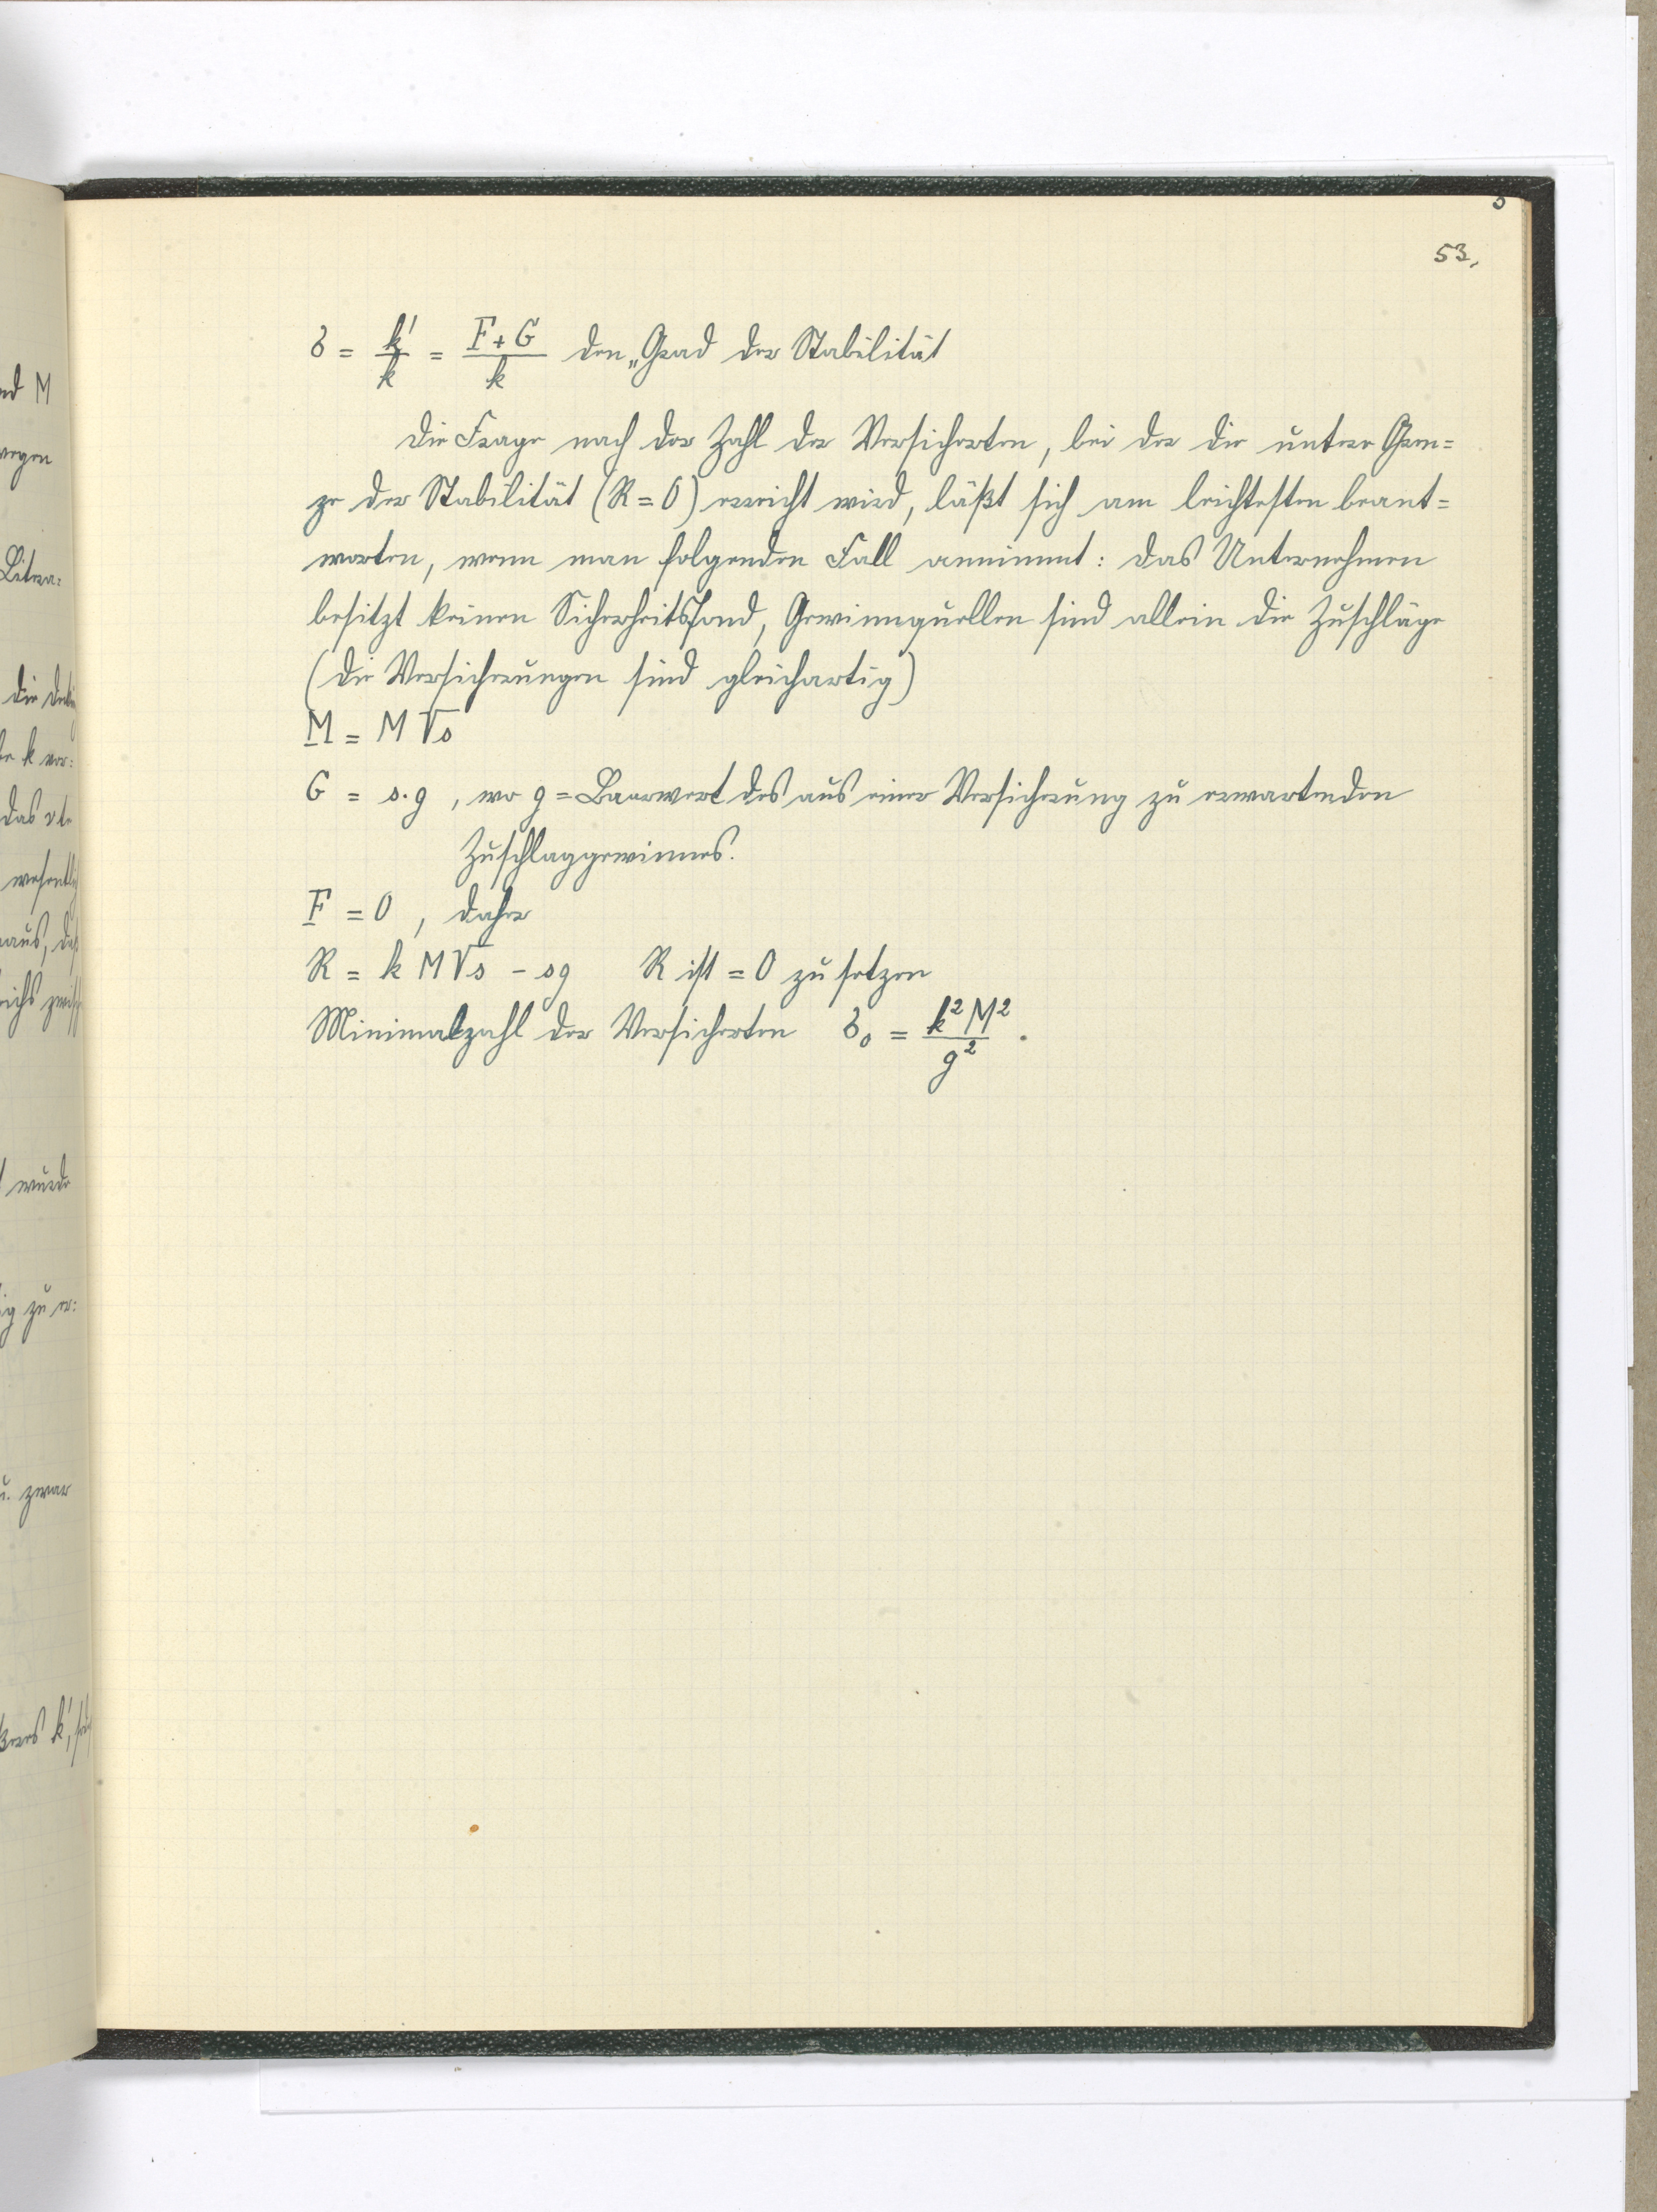 53.
δ = k'/k = (F+G)/k den „Grad der Stabilität
Die Frage nach der Zahl der Versicherten, bei der die untere Gren=
ze der Stabilität (R = 0) erreicht wird, läßt sich am leichtesten beant=
worten, wenn man folgenden Fall annimmt: Das Unternehmen
besitzt keinen Sicherheitsfond, Gewinnquellen sind allein die Zuschläge
(die Versicherungen sind gleichartig)
M = M √s
G = s.g , wo g = Baarwert des aus einer Versicherung zu erwartenden
Zuschlaggewinnes.
F = 0 , daher
R = k M √s - sg R ist = 0 zu setzen
Minimalzahl der Versicherten δ₀ = k² M² / g² .